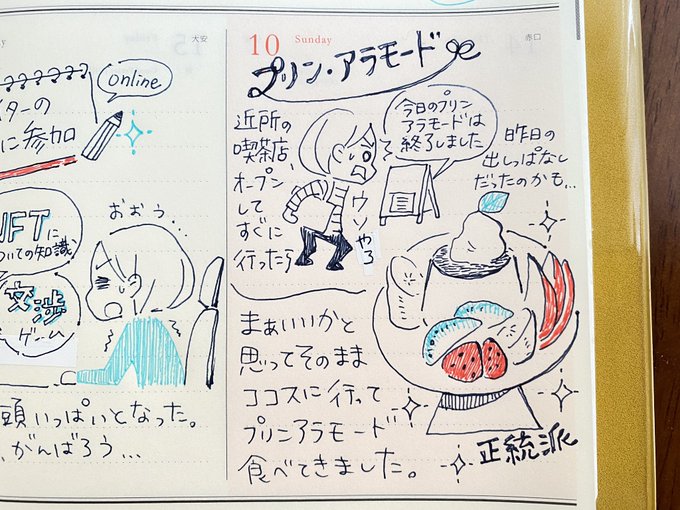 大安
online
イターの
に参加
NFTに
ついての知識
交渉
ゲーム
おおう..
頭いっぱいとなった。
がんばろう…
10 Sunday
赤口
プリン・アラモード
近所の
喫茶店、
オープン
して
すぐに
行ったら
今日のプリン
アラモードは
終了しました
ウソやろ
昨日の
出しっぱなし
だったのかも…
まぁいいかと
思ってそのまま
ココスに行って
プリンアラモード
食べてきました。
正統派